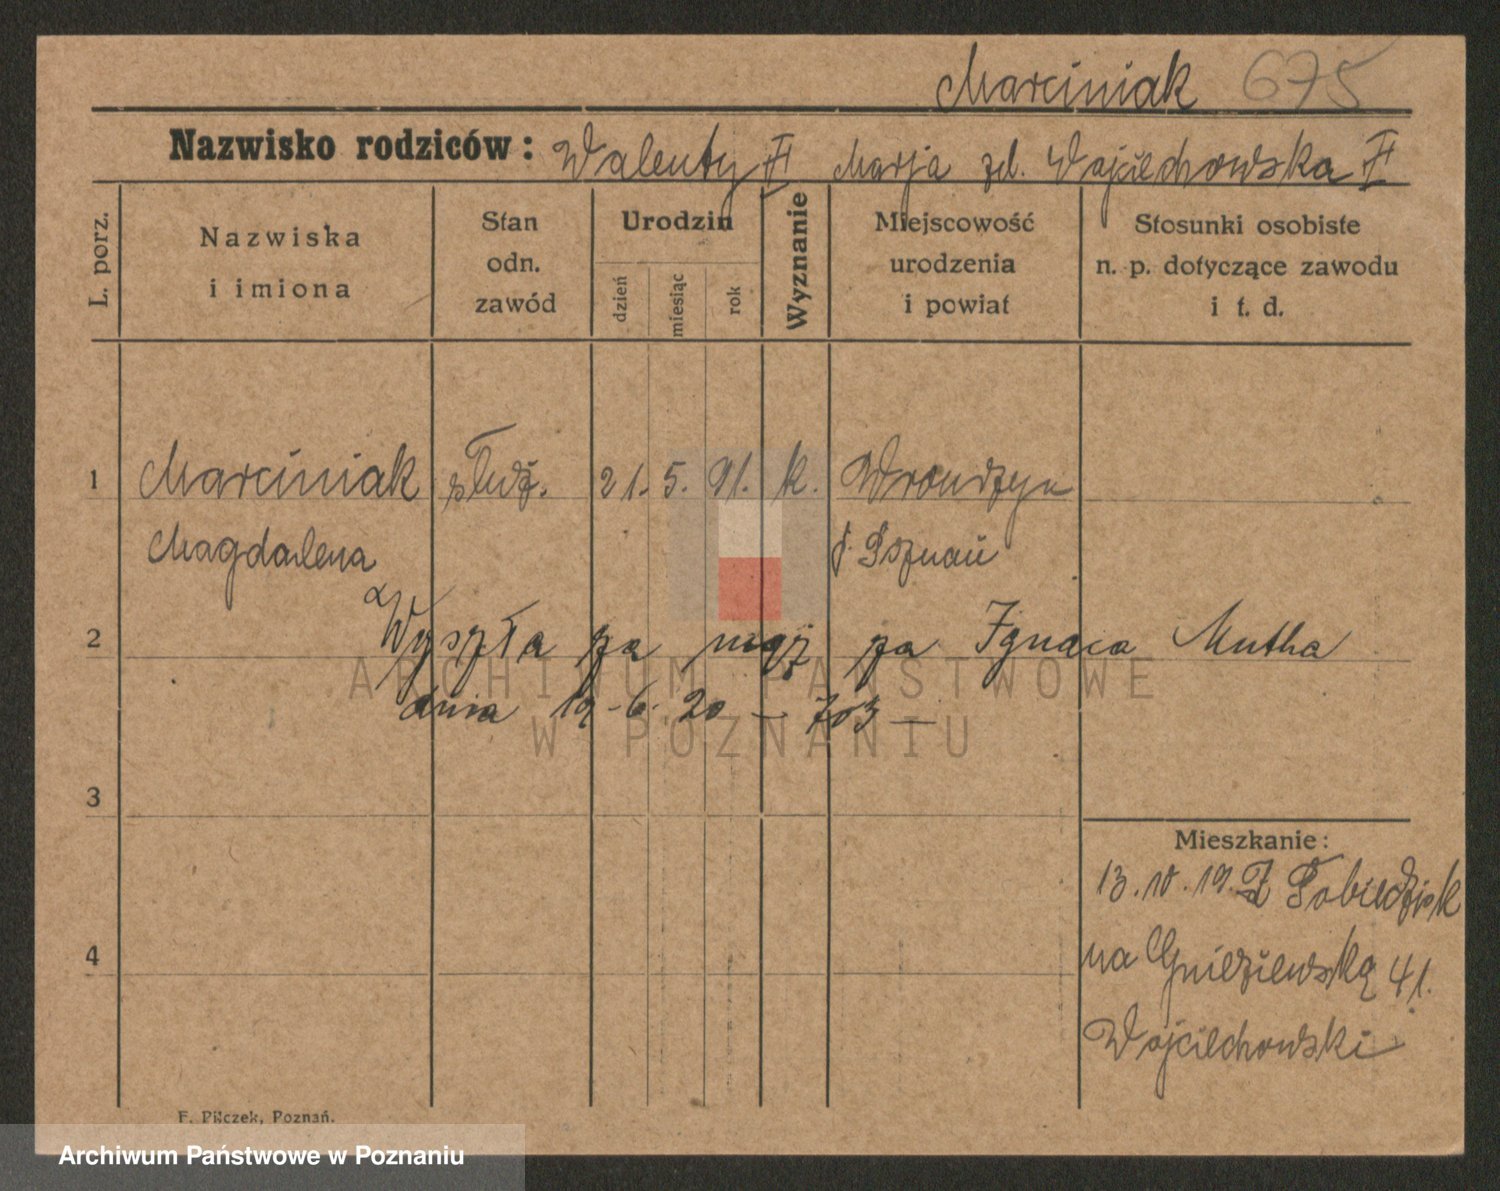 Marciniak 675
Nazwisko rodziców: Walenty Marja zd. Wojciechowska
L. porz.
Nazwiska
i imiona
Stan
odn.
zawód
Urodzin
dzień
miesiąc
rok
Wyznanie
Miejscowość
urodzenia
i powiat
Stosunki osobiste
n. p. dotyczące zawodu
i t. d.
1 Marciniak służ. 21. 5. 91. k. Wronczyn
Magdalena p. Poznań
2 Wyszła za mąż za Ignaca Mutha
dnia 19-6-20 — 703 —
3
4
Mieszkanie:
13.10.19. Z Pobiedzisk
na Gnieźnieńską 41.
Wojciechowski
F. Pilczek, Poznań.
ARCHIWUM PAŃSTWOWE
W POZNANIU
Archiwum Państwowe w Poznaniu